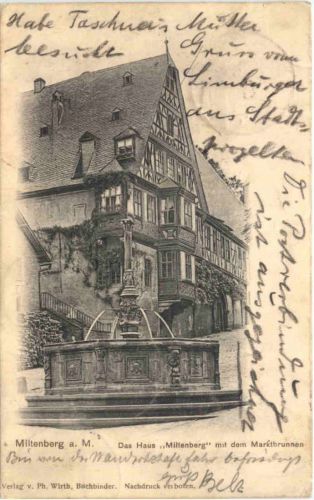 Habe Taschners Mutter
besucht
Gruss vom
Limburger
aus Stadt-
prozelten
Die Postverbindung
ist ausgezeichnet
Miltenberg a. M.
Das Haus „Miltenberg" mit dem Marktbrunnen
Bin von der
Verlag v. Ph. Wirth, Buchbinder. Nachdruck verboten.